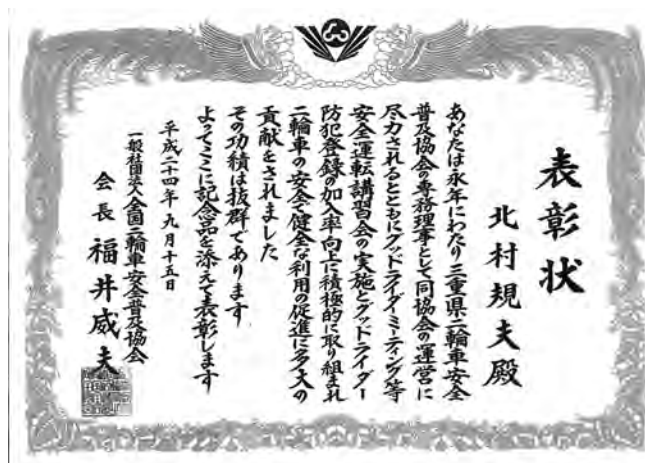 表彰状
北村規夫殿
あなたは永年にわたり三重県二輪車安全
普及協会の専務理事として同協会の運営に
尽力されるとともにグッドライダーミーティング等
安全運転講習会の実施とグッドライダー
防犯登録の加入率向上に積極的に取り組まれ
二輪車の安全で健全な利用の促進に多大の
貢献をされました
その功績は抜群であります
よってここに記念品を添えて表彰します
平成二十四年九月十五日
一般社団法人全国二輪車安全普及協会
会長 福井威夫